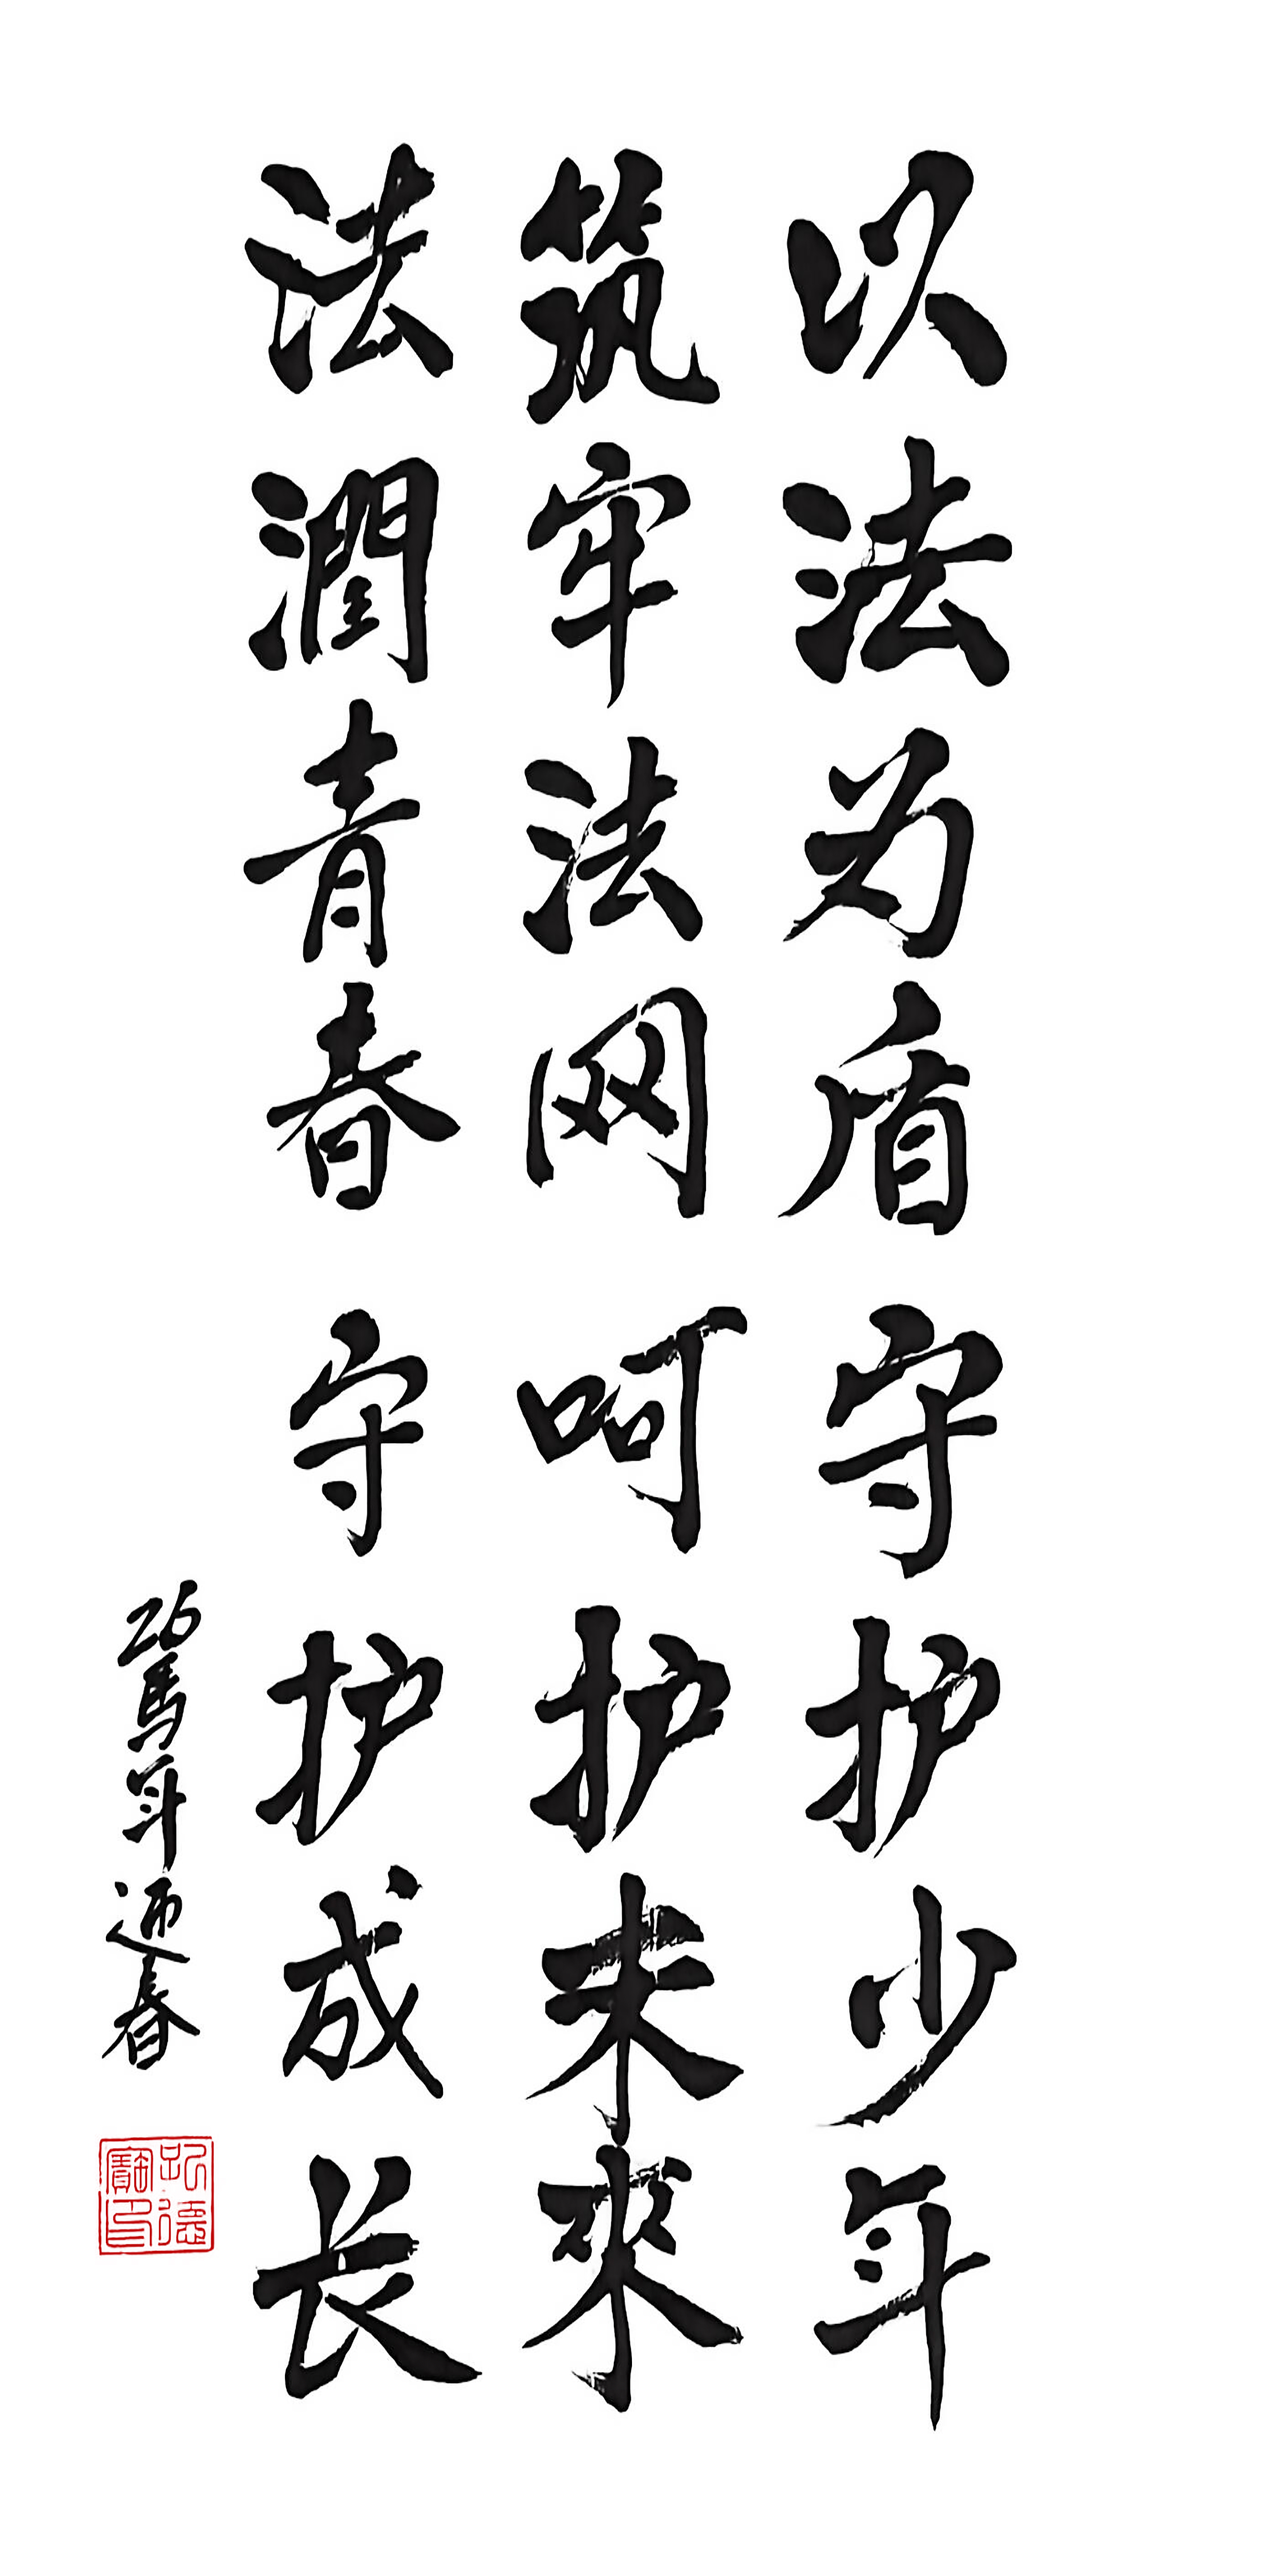 以法为盾守护少年
筑牢法网呵护未來
法潤青春守护成长
26馬年迎春